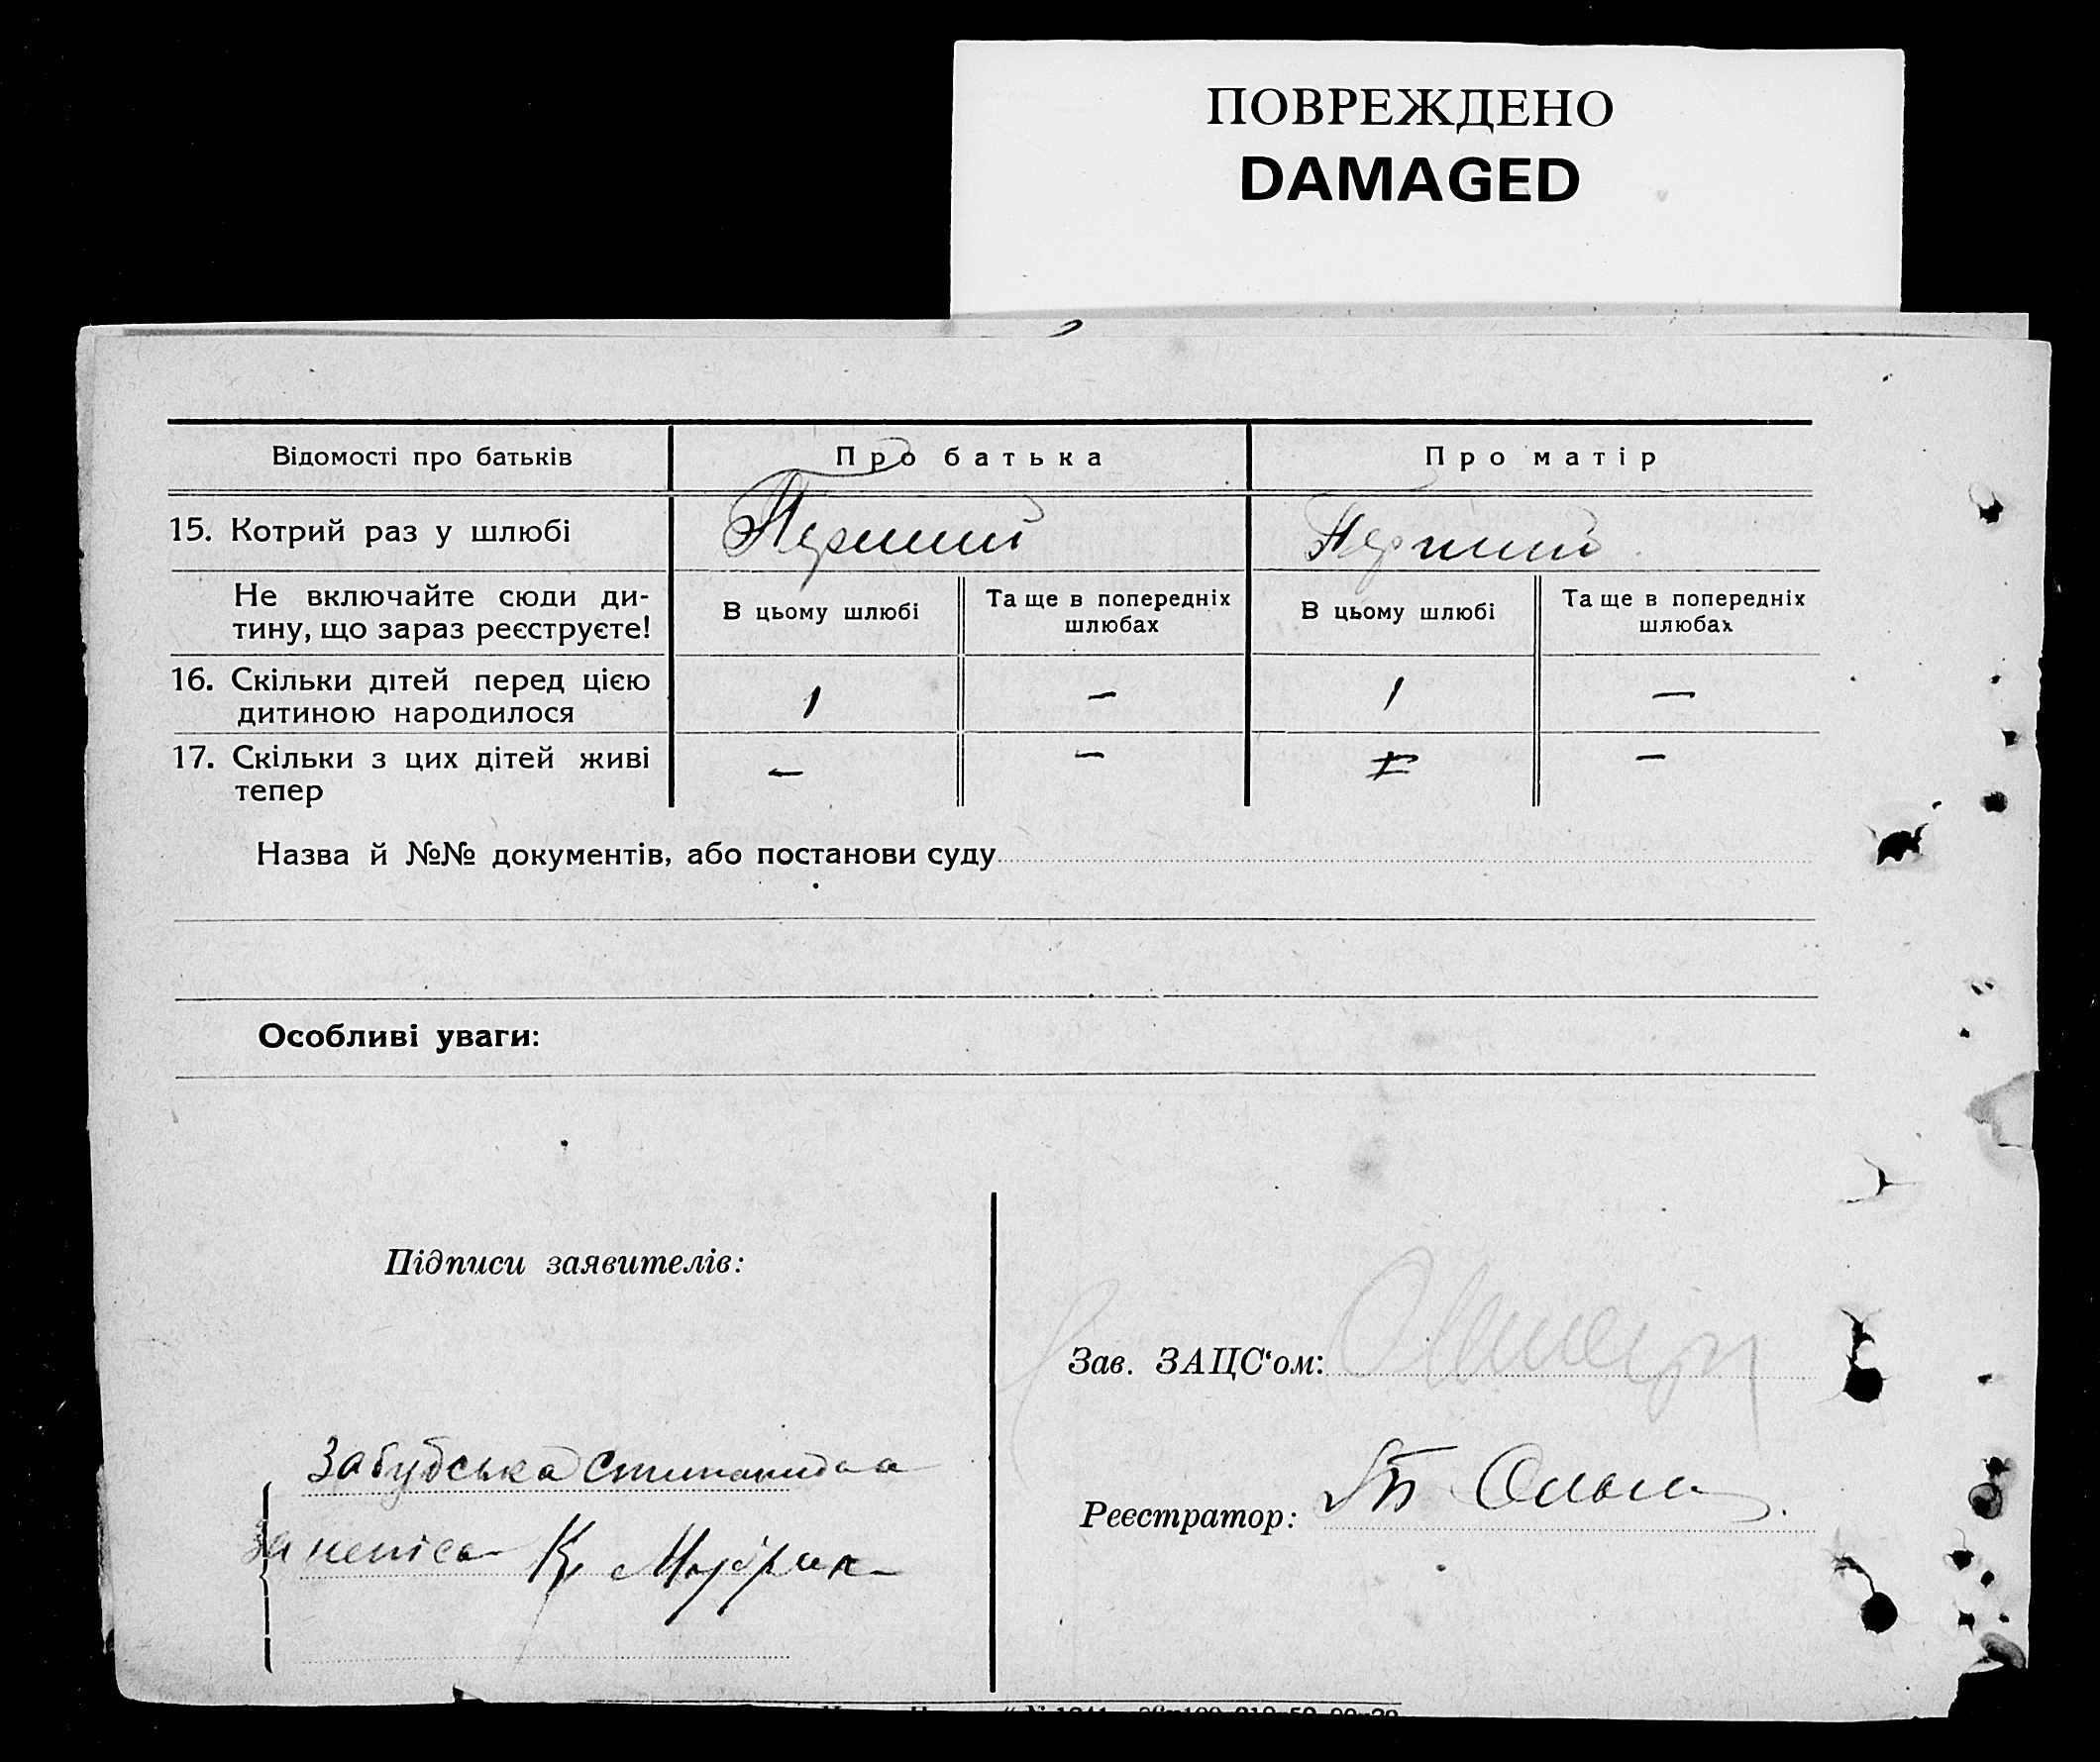 ПОВРЕЖДЕНО
DAMAGED
Відомості про батьків
Про батька
Про матір
15. Котрий раз у шлюбі
Перший
Перший
Не включайте сюди ди-
тину, що зараз реєструєте!
В цьому шлюбі
Та ще в попередніх
шлюбах
В цьому шлюбі
Та ще в попередніх
шлюбах
16. Скільки дітей перед цією
дитиною народилося
1
—
1
—
17. Скільки з цих дітей живі
тепер
—
—
—
Назва й №№ документів, або постанови суду
Особливі уваги:
Підписи заявителів:
Зав. ЗАЦС‘ом:
Забудська
Реєстратор:
К